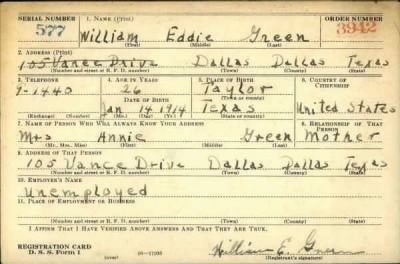 SERIAL NUMBER 1. NAME (Print) ORDER NUMBER
577 William Eddie Green 3942
(First) (Middle) (Last)
2. ADDRESS (Print)
105 Vance Drive Dallas Dallas Texas
(Number and street or R. F. D. number) (Town) (County) (State)
3. TELEPHONE 4. AGE IN YEARS 5. PLACE OF BIRTH 6. COUNTRY OF CITIZENSHIP
9-1440 26 Taylor
DATE OF BIRTH (Town or county)
Jan 14 1914 Texas United States
(Exchange) (Number) (Mo.) (Day) (Yr.) (State or country)
7. NAME OF PERSON WHO WILL ALWAYS KNOW YOUR ADDRESS 8. RELATIONSHIP OF THAT PERSON
Mrs Annie Green Mother
(Mr., Mrs., Miss) (First) (Middle) (Last)
9. ADDRESS OF THAT PERSON
105 Vance Drive Dallas Dallas Texas
(Number and street or R. F. D. number) (Town) (County) (State)
10. EMPLOYER'S NAME
Unemployed
11. PLACE OF EMPLOYMENT OR BUSINESS
(Number and street or R. F. D. number) (Town) (County) (State)
I AFFIRM THAT I HAVE VERIFIED ABOVE ANSWERS AND THAT THEY ARE TRUE.
REGISTRATION CARD William E. Green
D. S. S. Form 1 (over) (Registrant's signature)